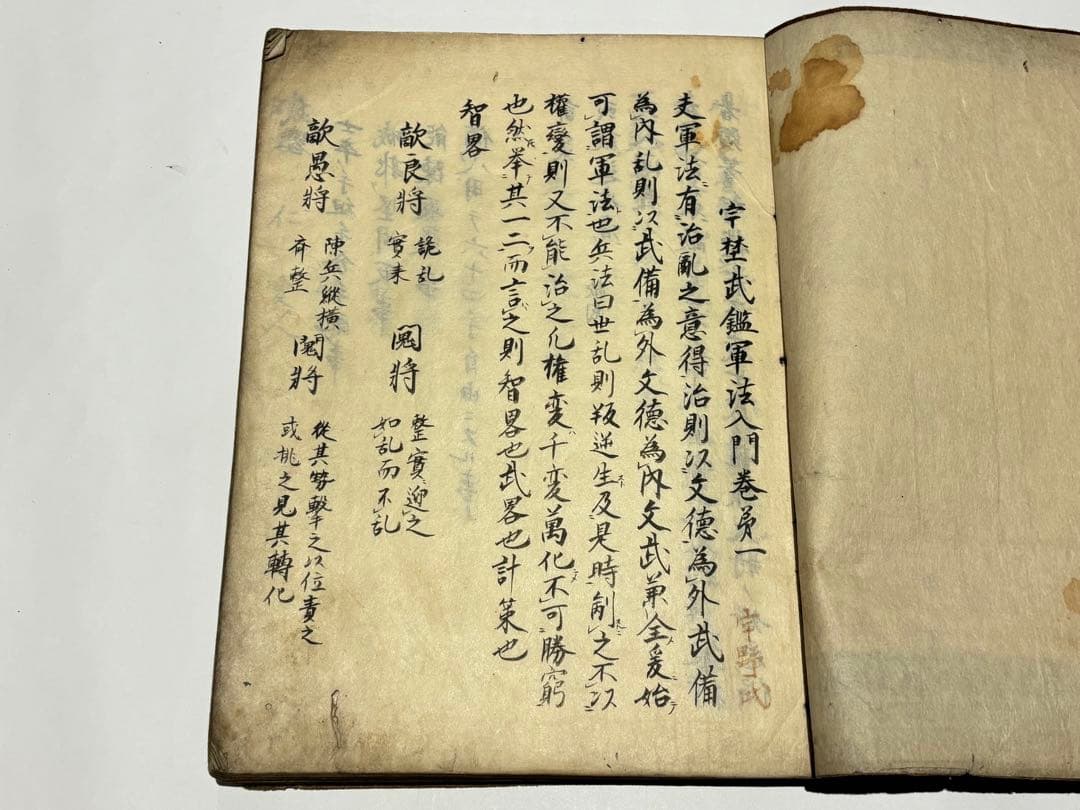 宇埜武鑑軍法入門巻第一
夫軍法有治亂之意得治則以文德為外武備
為内乱則以武備為外文德為内文武兼全爰始
可謂軍法也兵法曰世乱則叛逆生及是時制之不以
權變則又不能治之凡權変千変萬化不可勝窮
也然举其一二而言之則智畧也武畧也計策也
智畧
敵良將 詭乱實来 闘将 整實迎之如乱而不乱
敵愚將 陳兵縱横齊整 闘将 從其勢擊之以位責之或挑之見其轉化
宇野氏